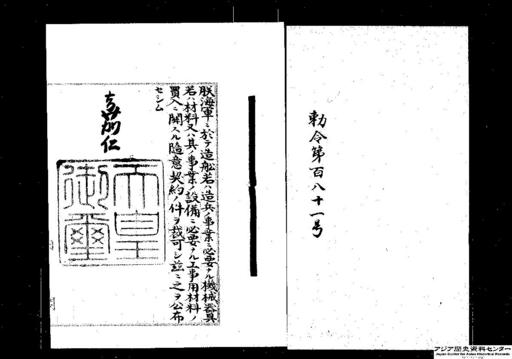 勅令第百八十一号
朕海軍ニ於テ造船若ハ造兵ノ事業ニ必要ナル機械器具
若ハ材料又ハ其ノ事業ノ設備ニ必要ナル工事用材料ノ
買入ニ関スル随意契約ノ件ヲ裁可シ茲ニ之ヲ公布
セシム
嘉仁
天皇
御璽
アジア歴史資料センター
Japan Center for Asian Historical Records